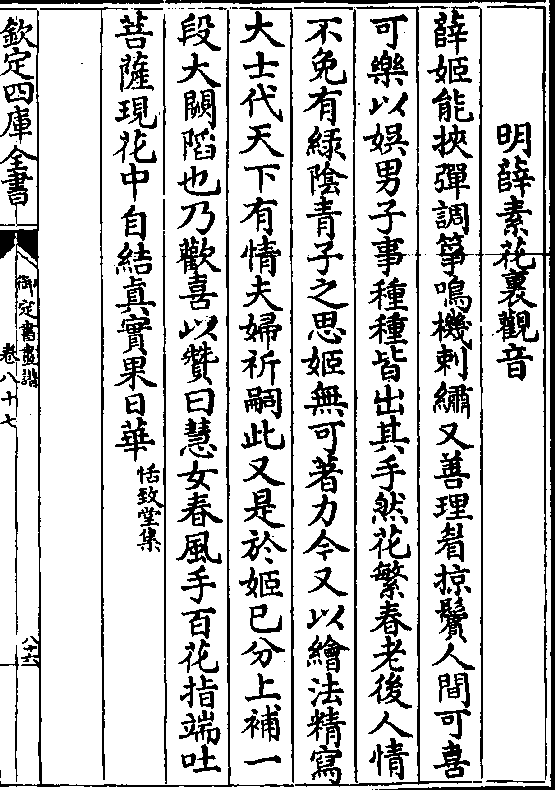 明薛素花裏觀音
薛姬能挾彈調箏鳴機刺繡又善理眢掠鬢人間可喜
可樂以娛男子事種種皆出其手然花繁春老後人情
不免有綠陰青子之思姬無可著力今又以繪法精寫
大士代天下有情夫婦祈嗣此又是於姬已分上補一
段大闕陷也乃歡喜以贊曰慧女春風手百花指端吐
菩薩現花中自結真實果日華恬致堂集
欽定四庫全書
御定書畫譜
卷八十七
八十六